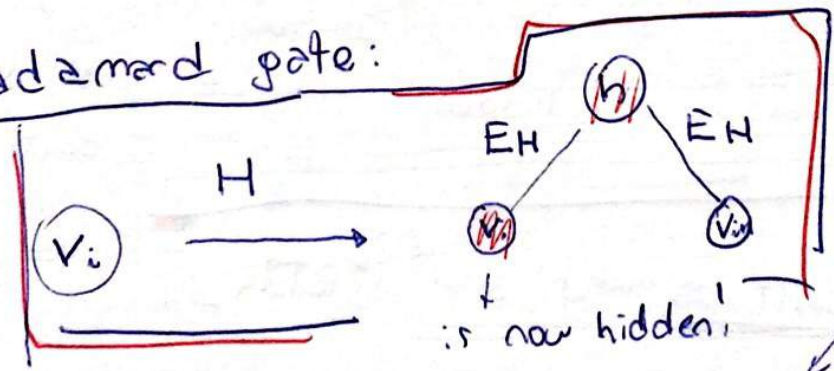 adamard gate:
h
EH EH
H
Vi Vi
is now hidden!